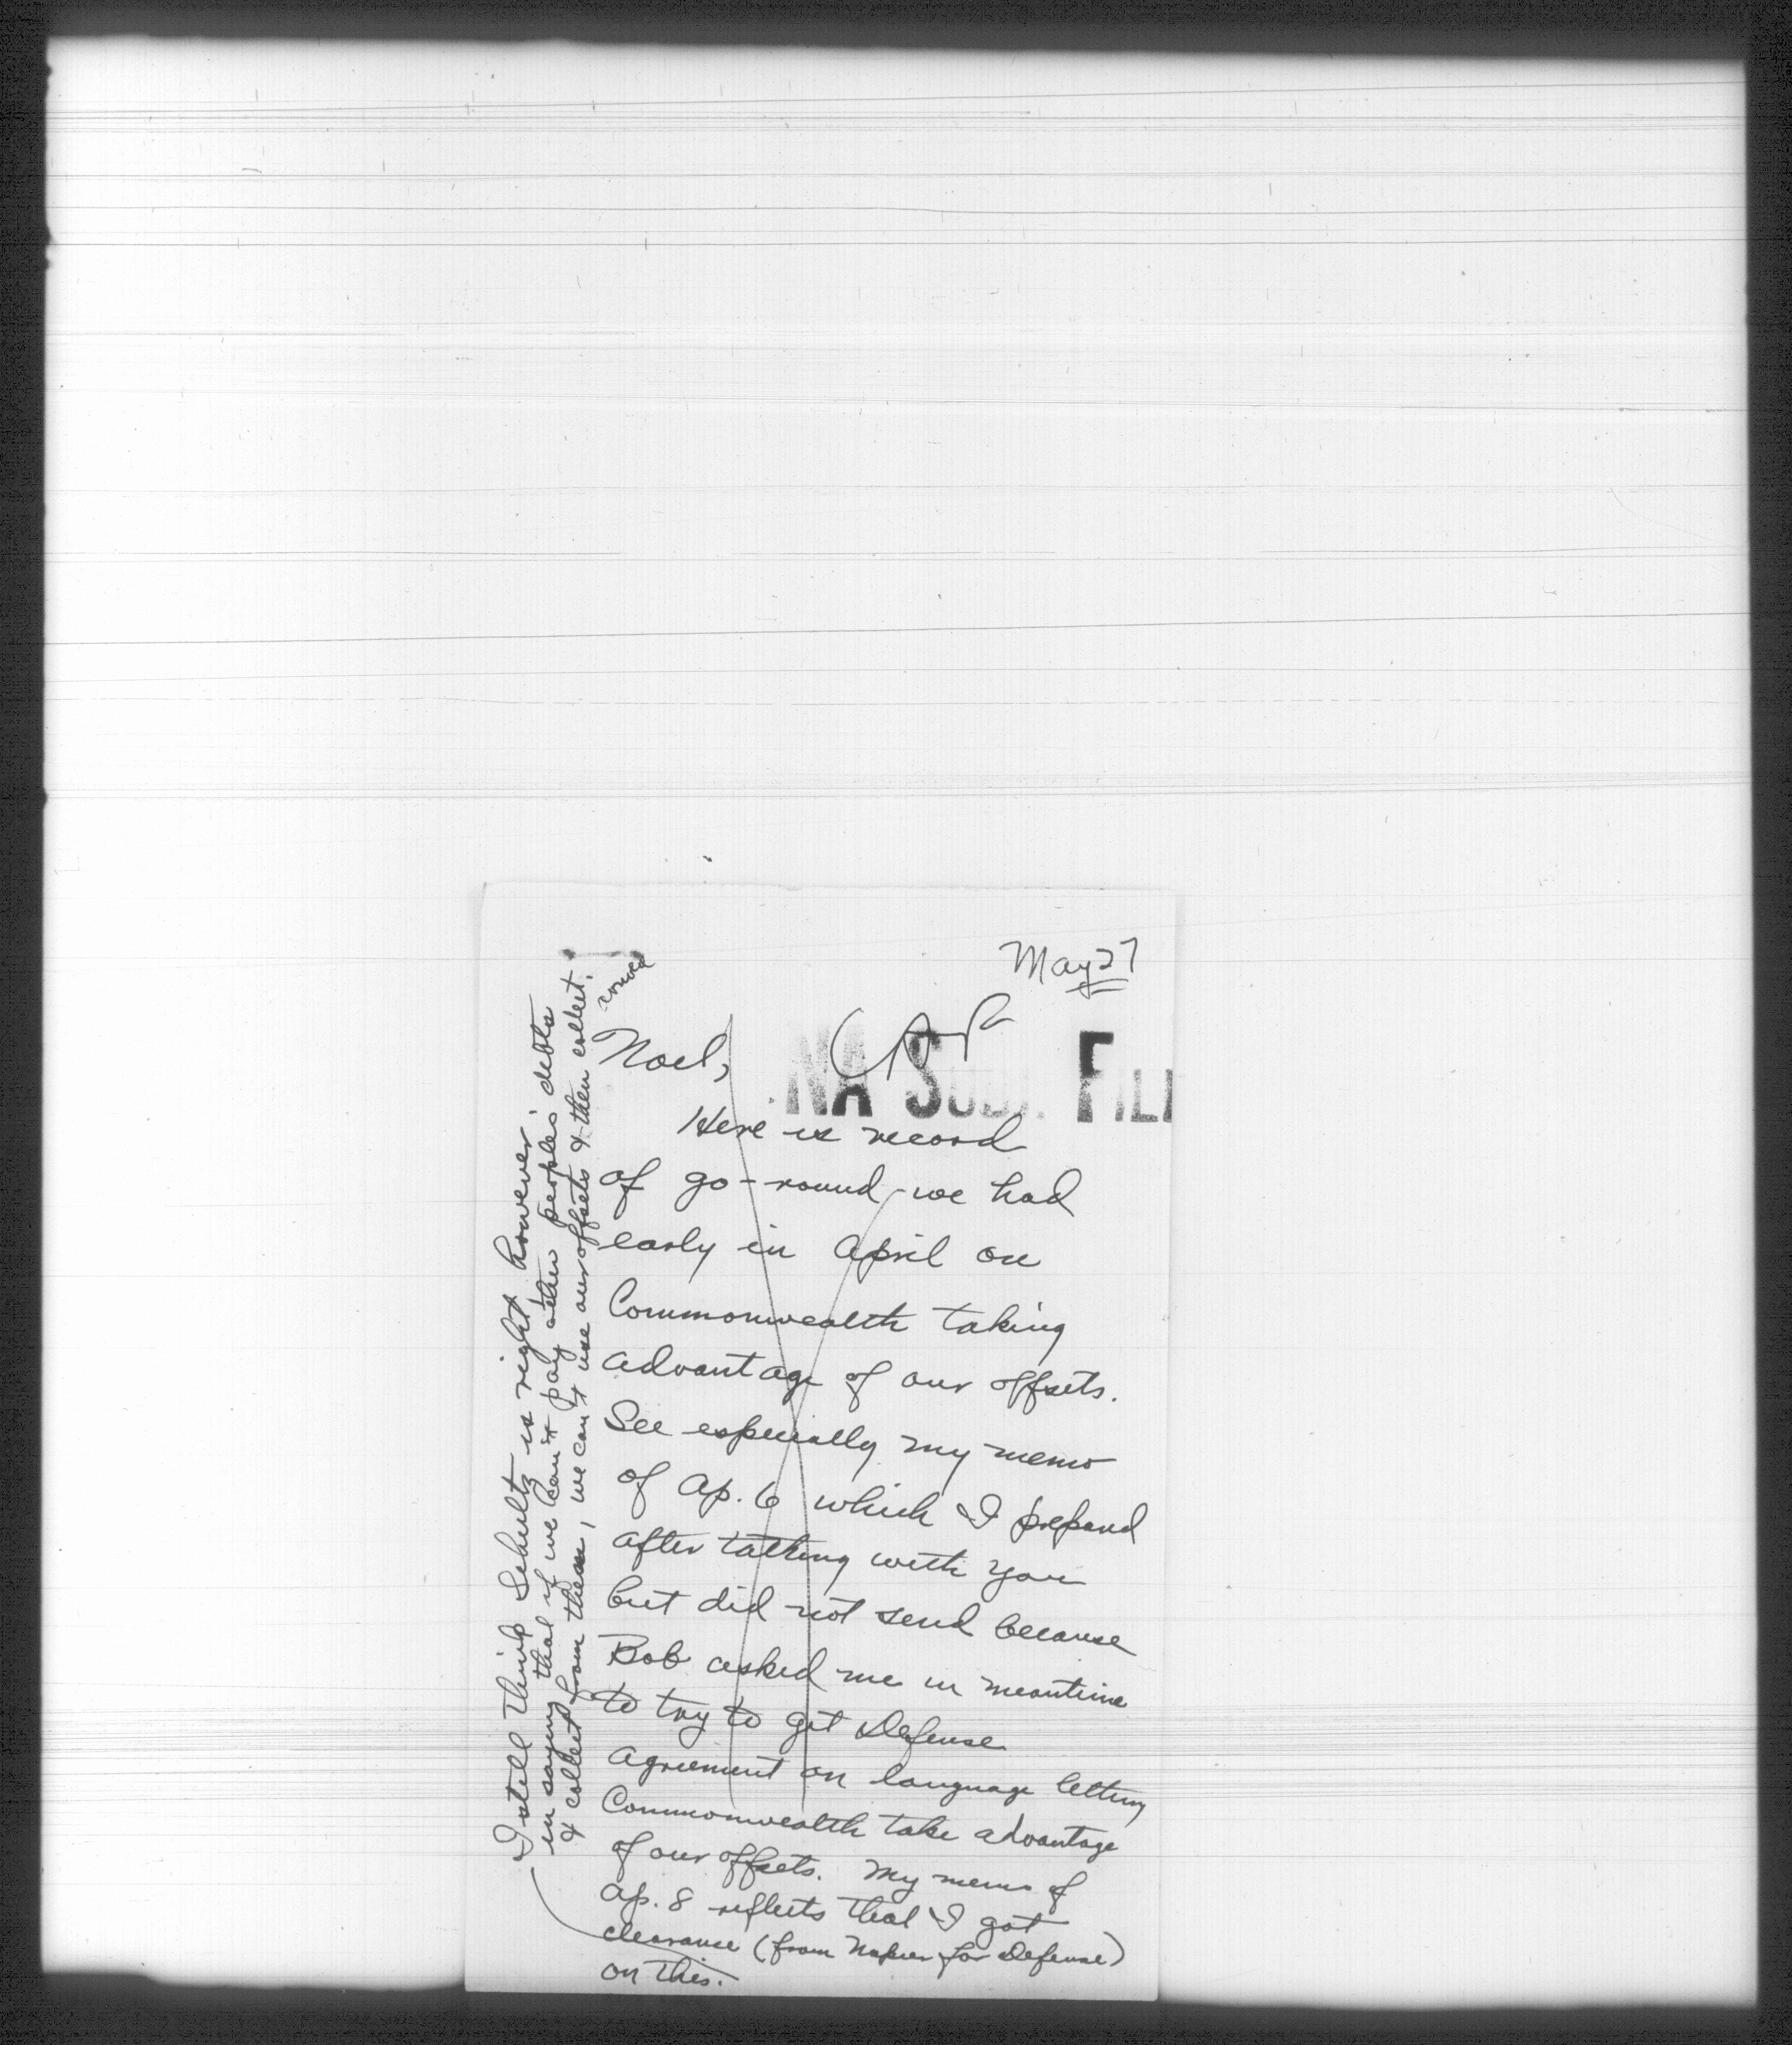 May 27
Noel,
NA Sub. FILE
Here is record
of go-round we had
early in April on
Commonwealth taking
advantage of our offsets.
See especially my memo
of Ap. 6 which I prepared
after talking with you
but did not send because
Bob asked me in meantime
to try to get Defense
agreement on language letting
Commonwealth take advantage
of our offsets. My memo of
Ap. 8 reflects that I got
clearance (from Napier for Defense)
on this.
I still think Schultz is right however
in saying that if we can't pay other people's debts
& collect from them, we can't use our offsets & then collect.